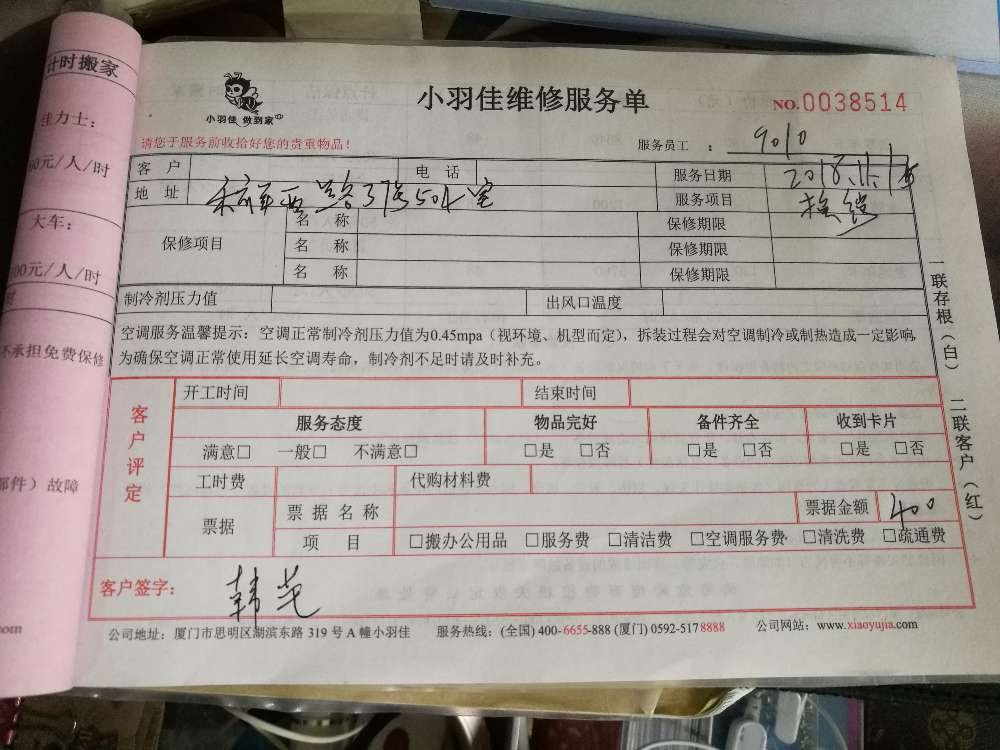 计时搬家
佳力士：
00元/人/时
大车：
00元/人/时
不承担免费保修
部件）故障
com
小羽佳 做到家
小羽佳维修服务单
NO.0038514
请您于服务前收拾好您的贵重物品！
服务员工 ： 9010
客 户 电 话 服务日期 2018.11.
地 址 路37号501室 服务项目
保修项目
名 称 保修期限
名 称 保修期限
名 称 保修期限
制冷剂压力值 出风口温度
空调服务温馨提示：空调正常制冷剂压力值为0.45mpa（视环境、机型而定），拆装过程会对空调制冷或制热造成一定影响，
为确保空调正常使用延长空调寿命，制冷剂不足时请及时补充。
一联存根（白） 二联客户（红）
客户评定
开工时间 结束时间
服务态度 物品完好 备件齐全 收到卡片
满意□ 一般□ 不满意□ □是 □否 □是 □否 □是 □否
工时费 代购材料费
票据
票 据 名 称 票据金额 400
项 目 □搬办公用品 □服务费 □清洁费 □空调服务费 □清洗费 □疏通费
客户签字： 韩
公司地址：厦门市思明区湖滨东路 319 号 A 幢小羽佳 服务热线：(全国) 400-6655-888 (厦门) 0592-5178888 公司网站：www.xiaoyujia.com